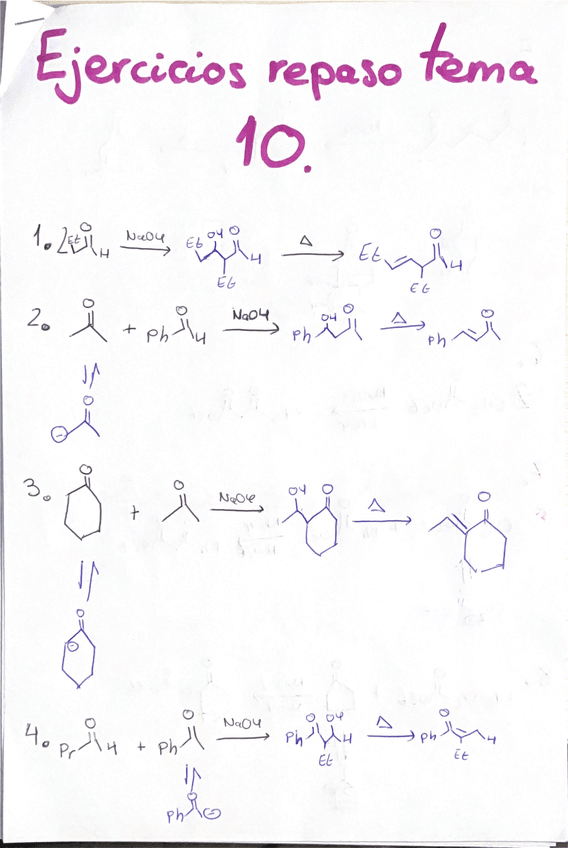 Ejercicios repaso tema
10.
1. 2 Et O H NaOH Et OH O H Et Δ Et O H Et
2. O + Ph O H NaOH Ph OH O Δ Ph O
⊖ O
3. O + O NaOH OH O Δ O
O ⊖
4. Pr O H + Ph O NaOH Ph O OH H Et Δ Ph O Et H
Ph O ⊖